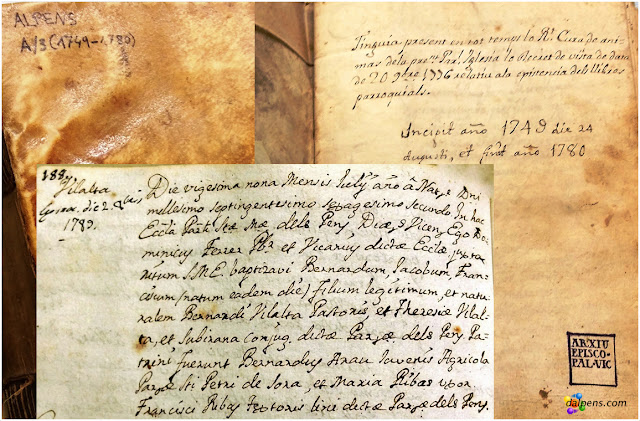 ALPENS
A/3 (1749-1780)
Tinguia present en tot temps lo Rt. Cura de ani-
mas dela prent Pral. Iglesia lo Decret de visita de data
de 20 9bre 1776 relatiu ala existencia dels llibres
parroquials.
Incipit año 1749 die 24
augusti, et finit año 1780
Vilalta
1789.
Die vigesima nona Mensis Julij año â Natte Dni
millesimo septingentesimo septuagesimo secundo In hac
Eccla Parli Stæ Mæ dels Peny Diæs Vicen Ego Do-
minicus Ferrer Pbr et Vicarius dictæ Ecclæ juxta
ritum S.M.E. baptizavi Bernardum, Jacobum, Fran-
ciscum (natum eadem die) filium legitimum, et natu-
ralem Bernardi Vilalta Pastoris, et Theresiæ Vilal-
ta, et Subirana Conjug. dictæ Paræ dels Peny Pa-
trini fuerunt Bernardus Arau Juvenis Agricola
Paræ Sti Petri de Sora, et Maria Ribas uxor
Francisci Ribas textoris lini dictæ Paræ dels Peny.
ARXIU
EPISCO-
PAL·VIC
dalpens.com